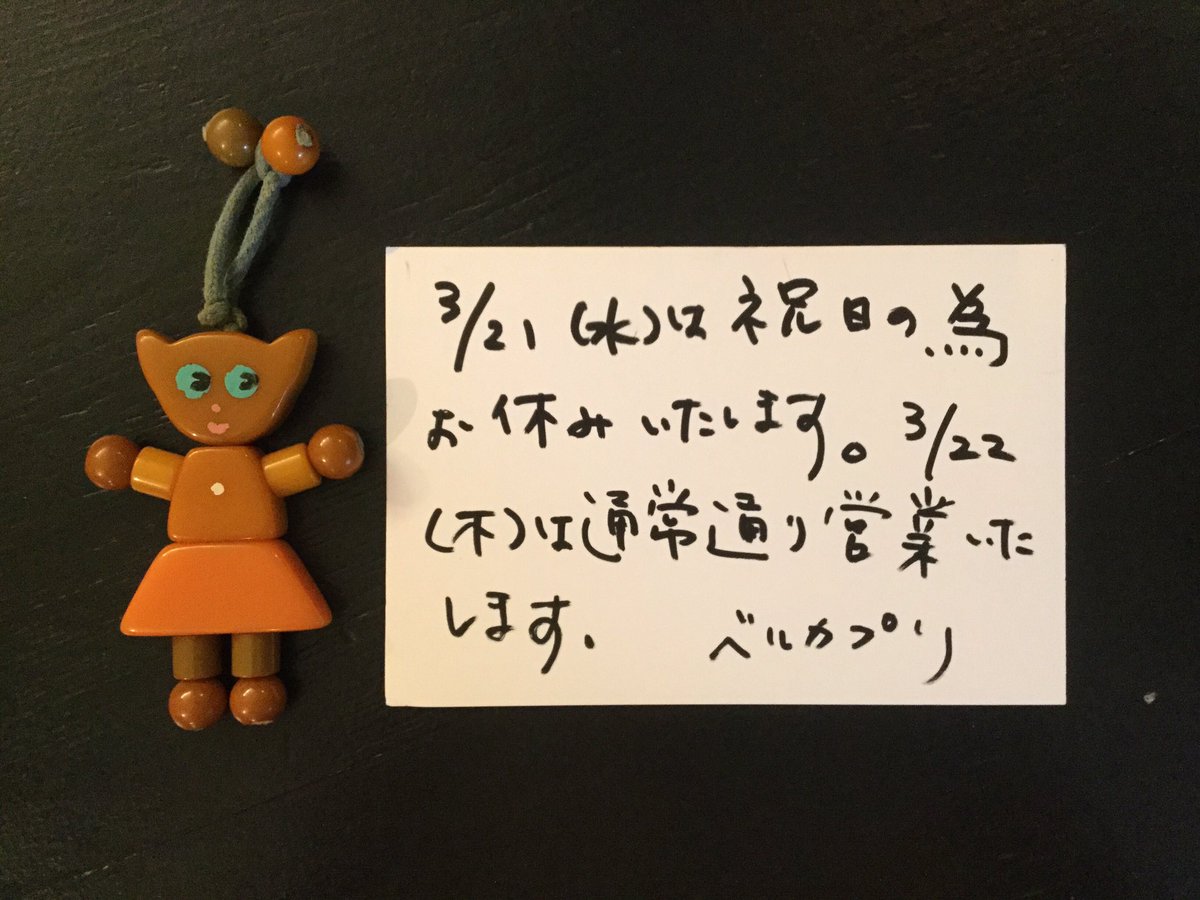 3/21（水）は祝日の為
お休みいたします。3/22
（木）は通常通り営業いた
します。 ベルカプリ